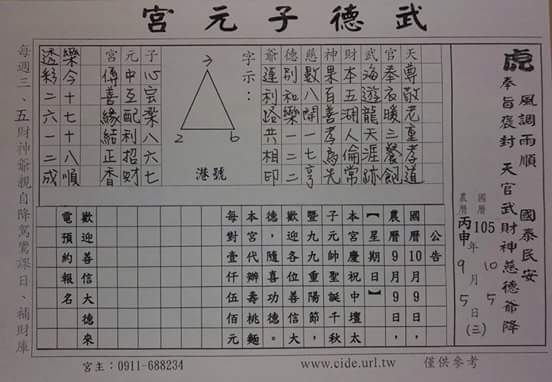 武德子元宮
風調雨順 國泰民安
虎 奉旨褒封 天官武財神慈德爺降
國曆 105年10月5日(三)
農曆 丙申 9月5日
天尊敬老重孝道
官奉衣暖三餐飽
武海遊龍天涯跡
財本五湖人倫常
神果百善孝為先
慈數八開一七亨
德別和樂一二二
爺連利路共相印
字示：
3
2 6
港號
子心宗樂八六七
元中互配利招財
宮傳善緣結正香
樂今十七十八順
透彩二六一二成
公告
國曆10月9日，
農曆9月9日，
【星期日】
本宮慶祝中壇太
子元帥聖誕千秋
暨九九重陽節，
歡迎各位善信大
德，隨喜功德。
本宮代辦壽桃麵
每對壹仟伍佰元
歡迎善信大德來
電預約報名
每週三、五財神爺親自降駕鸞課日、補財庫
宮主：0911-688234
www.cide.url.tw
僅供參考